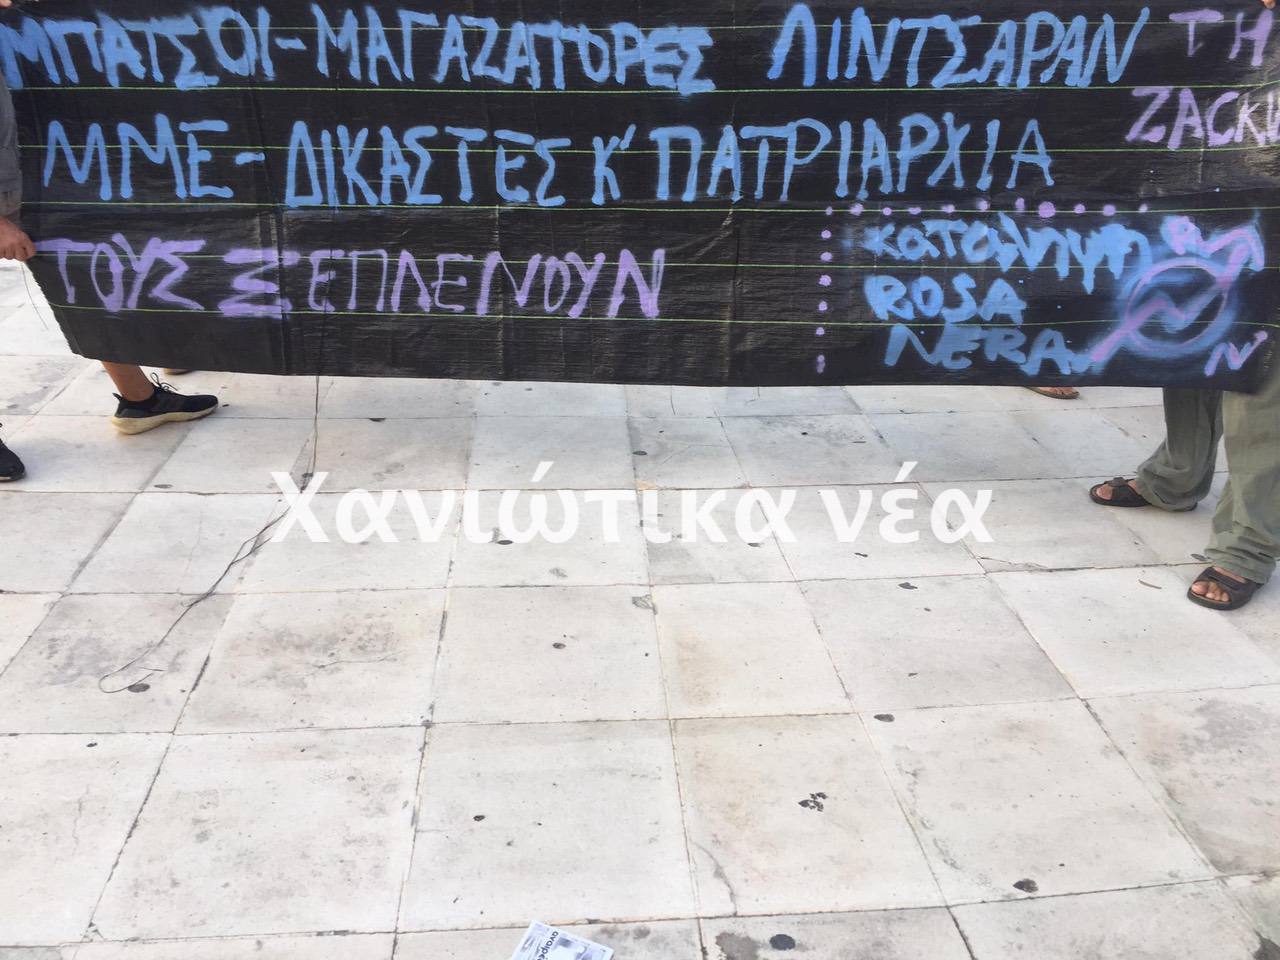 ΜΠΑΤΣΟΙ-ΜΑΓΑΖΑΤΟΡΕΣ ΛΙΝΤΣΑΡΑΝ ΤΗ
ZACKIE
ΜΜΕ-ΔΙΚΑΣΤΕΣ Κ' ΠΑΤΡΙΑΡΧΙΑ
ΤΟΥΣ ΞΕΠΛΕΝΟΥΝ
κατάληψη
ROSA
NERA
Χανιώτικα νέα